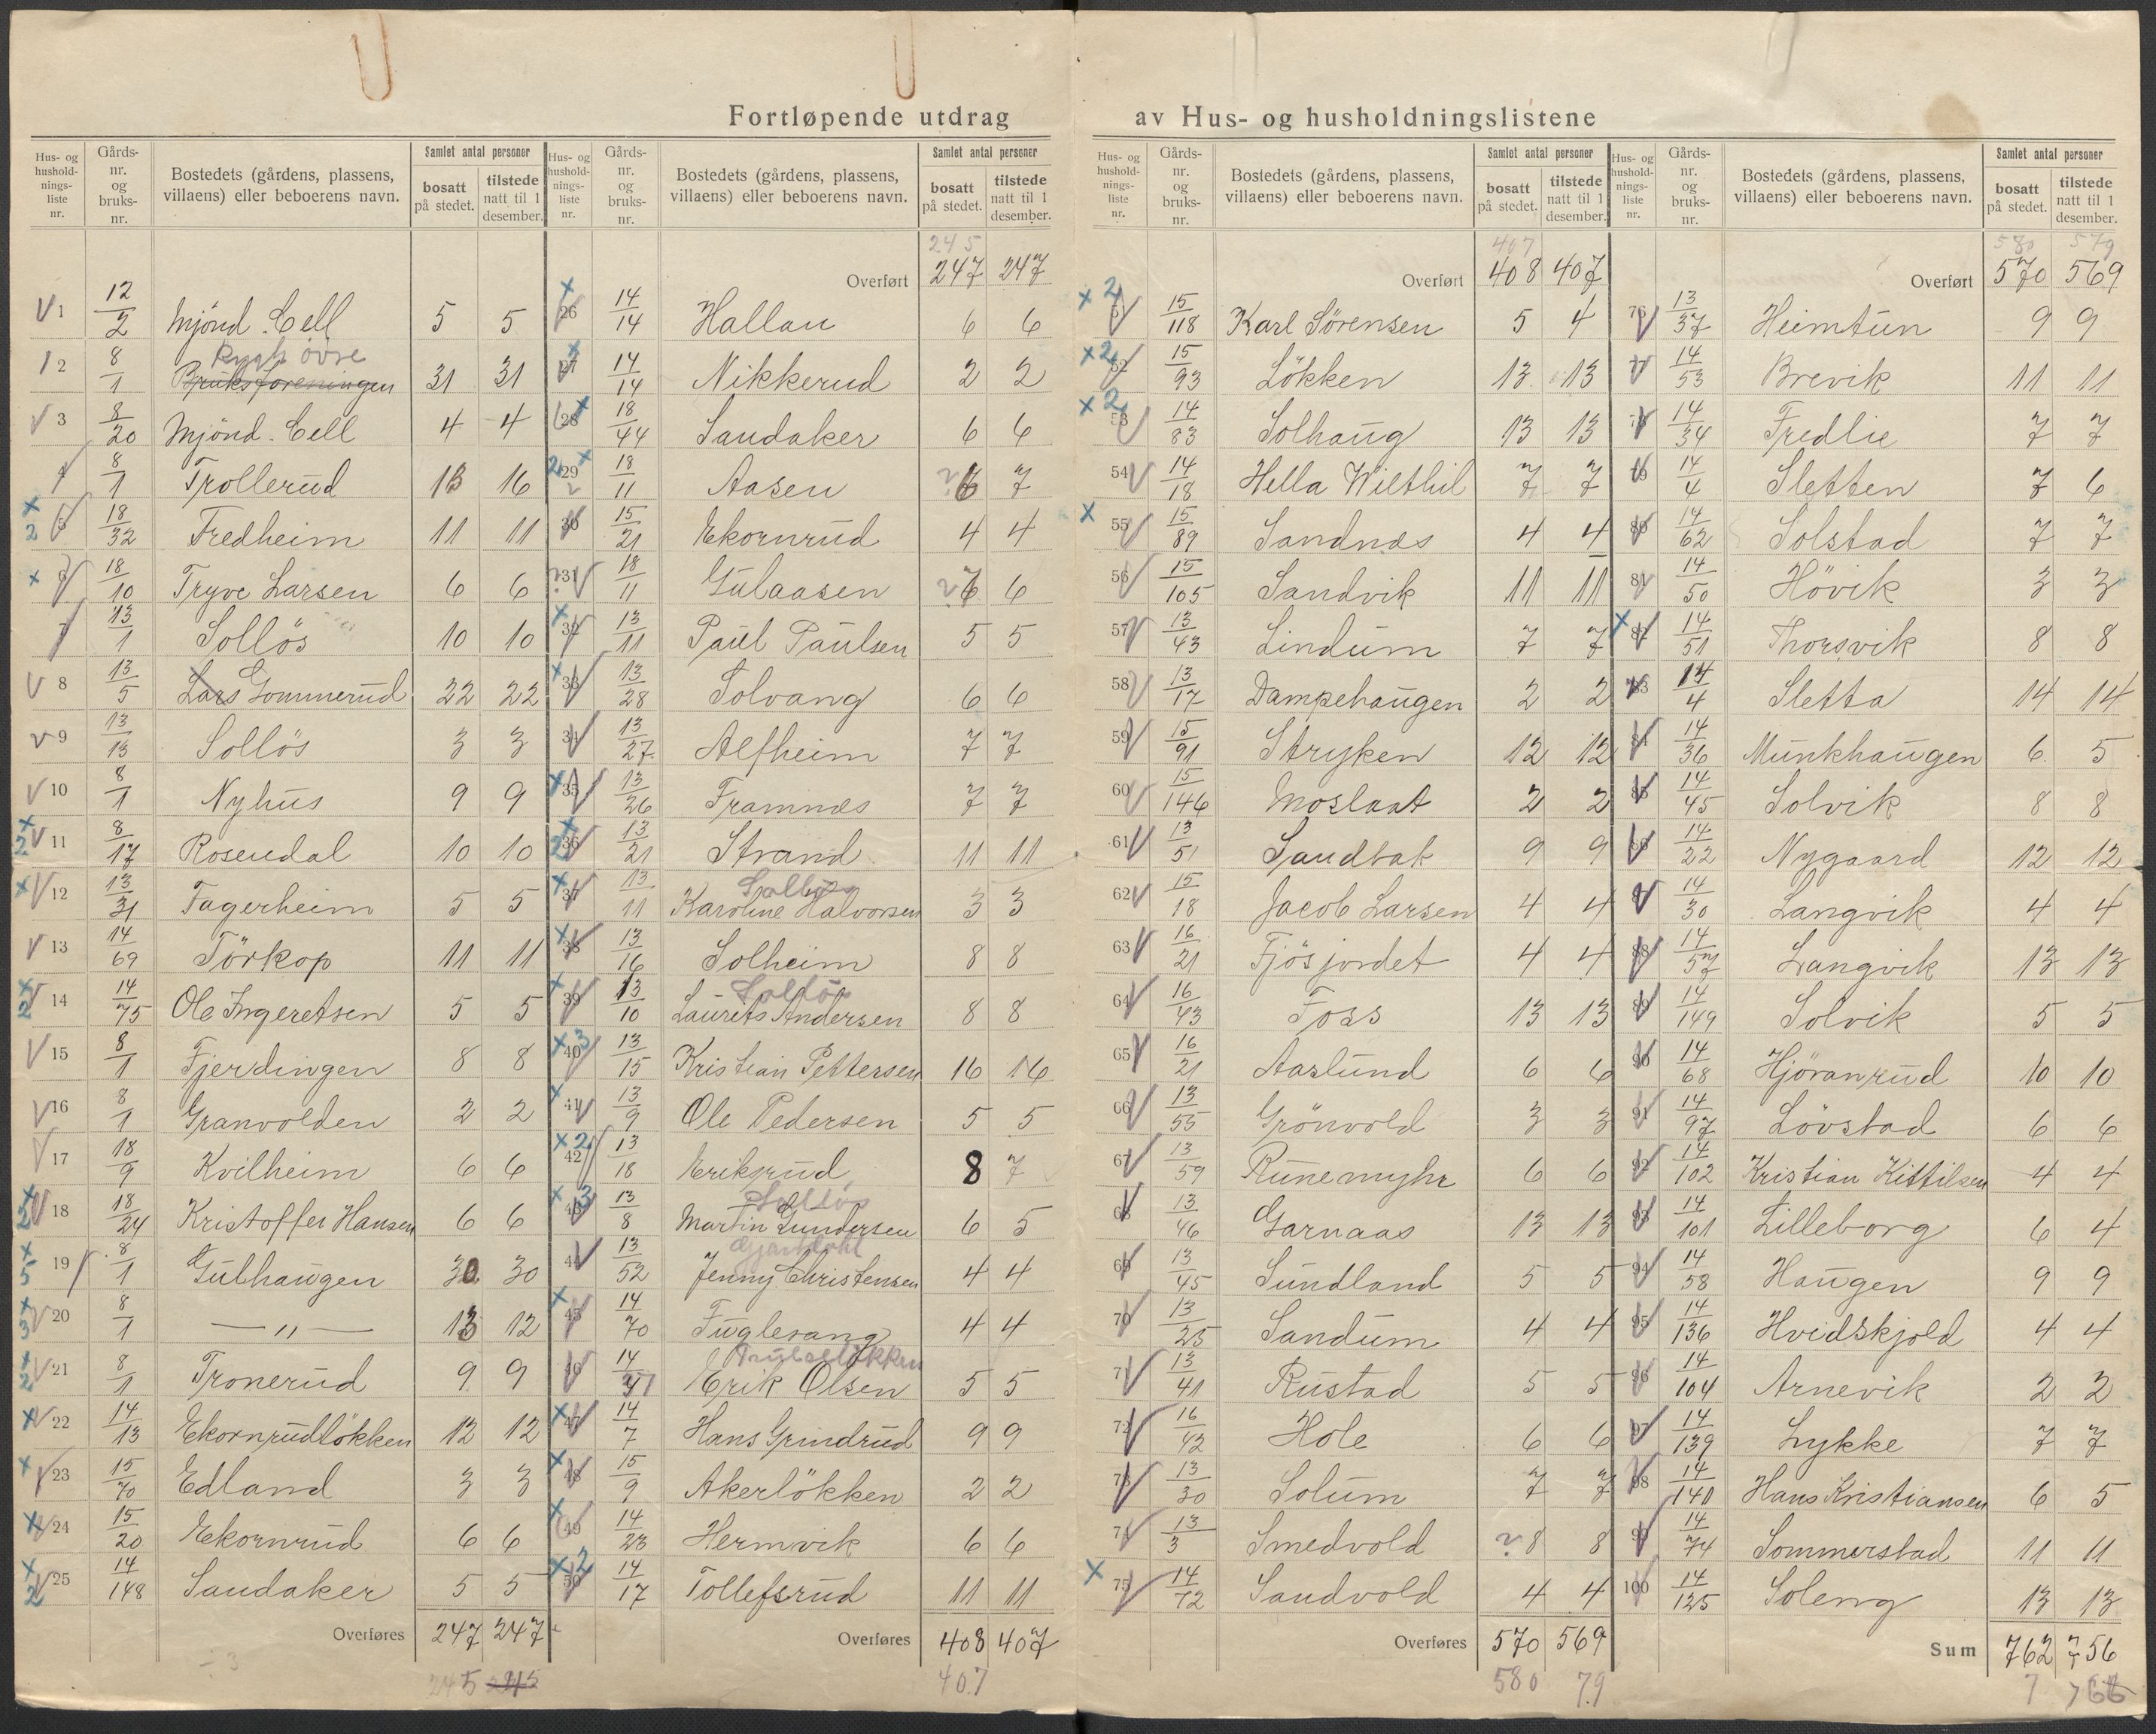 Fortløpende utdrag av Hus- og husholdningslistene
Hus- og husholdnings-liste nr. | Gårds-nr. og bruks-nr. | Bostedets (gårdens, plassens, villaens) eller beboerens navn. | Samlet antal personer | bosatt på stedet. | tilstede natt til 1 desember.
1 12/2 Mjönd. Cell 5 5
Rygh övre
2 8/1 Bruksforeningen 31 31
3 8/20 Mjönd. Cell 4 4
4 8/1 Trollerud 13 16
5 18/32 Fredheim 11 11
6 18/10 Tryve Larsen 6 6
7 13/1 Sollös 10 10
8 13/5 Lars Gommerud 22 22
9 13/13 Sollös 3 3
10 8/1 Nyhus 9 9
11 8/17 Rosendal 10 10
12 13/31 Fagerheim 5 5
13 14/69 Törkop 11 11
14 14/75 Ole Ingeretsen 5 5
15 8/1 Fjerdingen 8 8
16 8/1 Granvolden 2 2
17 18/9 Kvilheim 6 6
18 18/24 Kristoffer Hansen 6 6
19 8/1 Gulhaugen 30 30
20 8/1 — " — 13 12
21 8/1 Tronerud 9 9
22 14/13 Ekornrudlökken 12 12
23 15/70 Edland 3 3
24 15/20 Ekornrud 6 6
25 14/148 Sandaker 5 5
Overføres 247 247
245 245
Hus- og husholdnings-liste nr. | Gårds-nr. og bruks-nr. | Bostedets (gårdens, plassens, villaens) eller beboerens navn. | Samlet antal personer | bosatt på stedet. | tilstede natt til 1 desember.
245
Overført 247 247
26 14/14 Hallan 6 6
27 14/14 Nikkerud 2 2
28 18/44 Sandaker 6 6
29 18/11 Aasen 6 7
30 15/21 Ekornrud 4 4
31 18/11 Gulaasen 6 6
32 13/11 Paul Paulsen 5 5
33 13/28 Solvang 6 6
34 13/27 Alfheim 7 7
35 13/26 Framnæs 7 7
36 13/21 Strand 11 11
Solløs
37 13/11 Karoline Halvorsen 3 3
38 13/16 Solheim 8 8
Solløs
39 13/10 Laurits Andersen 8 8
40 13/15 Kristian Pettersen 16 16
41 13/9 Ole Pedersen 5 5
42 13/18 Eriksrud 8 7
Solløs
43 13/8 Martin Gundersen 6 5
44 13/52 Jenny Christensen 4 4
45 14/70 Fuglesang 4 4
46 14/31 Erik Olsen 5 5
47 14/7 Hans Grindrud 9 9
48 15/9 Akerlökken 2 2
49 14/23 Hermvik 6 6
50 14/17 Tollefsrud 11 11
Overføres 408 407
407
Hus- og husholdnings-liste nr. | Gårds-nr. og bruks-nr. | Bostedets (gårdens, plassens, villaens) eller beboerens navn. | Samlet antal personer | bosatt på stedet. | tilstede natt til 1 desember.
407
Overført 408 407
51 15/118 Karl Sörensen 5 4
52 15/93 Lökken 13 13
53 14/83 Solhaug 13 13
54 14/18 Hella Wilthil 7 7
55 15/89 Sandnæs 4 4
56 15/105 Sandvik 11 11
57 13/43 Lindum 7 7
58 13/17 Dampehaugen 2 2
59 15/91 Stryken 12 12
60 15/146 Moslaat 2 2
61 13/51 Sandbak 9 9
62 15/18 Jacob Larsen 4 4
63 16/21 Fjösjordet 4 4
64 16/43 Foss 13 13
65 16/21 Aaslund 6 6
66 13/55 Grönvold 3 3
67 13/59 Runemyhr 6 6
68 13/46 Garnaas 13 13
69 13/45 Sundland 5 5
70 13/25 Sandum 4 4
71 13/41 Rustad 5 5
72 16/42 Hole 6 6
73 13/30 Solum 7 7
74 13/3 Smedvold 8 8
75 14/72 Sandvold 4 4
Overføres 570 569
580 79
Hus- og husholdnings-liste nr. | Gårds-nr. og bruks-nr. | Bostedets (gårdens, plassens, villaens) eller beboerens navn. | Samlet antal personer | bosatt på stedet. | tilstede natt til 1 desember.
580 579
Overført 570 569
76 13/37 Heimtun 9 9
77 14/53 Brevik 11 11
78 14/34 Fredlie 7 7
79 14/4 Sletten 7 6
80 14/62 Solstad 7 7
81 14/50 Hövik 3 3
82 14/51 Thorsvik 8 8
83 14/4 Sletta 14 14
84 14/36 Munkhaugen 6 5
85 14/45 Solvik 8 8
86 14/22 Nygaard 12 12
87 14/30 Langvik 4 4
88 14/57 Langvik 13 13
89 14/149 Solvik 5 5
90 14/68 Hjöranrud 10 10
91 14/97 Lövstad 6 6
92 14/102 Kristian Kittilsen 4 4
93 14/101 Lilleborg 6 4
94 14/58 Haugen 9 9
95 14/136 Hvidskjold 4 4
96 14/104 Arnevik 2 2
97 14/139 Lykke 7 7
98 14/140 Hans Kristiansen 6 5
99 14/74 Sommerstad 11 11
100 14/125 Soleng 13 13
Sum 762 756
7 766